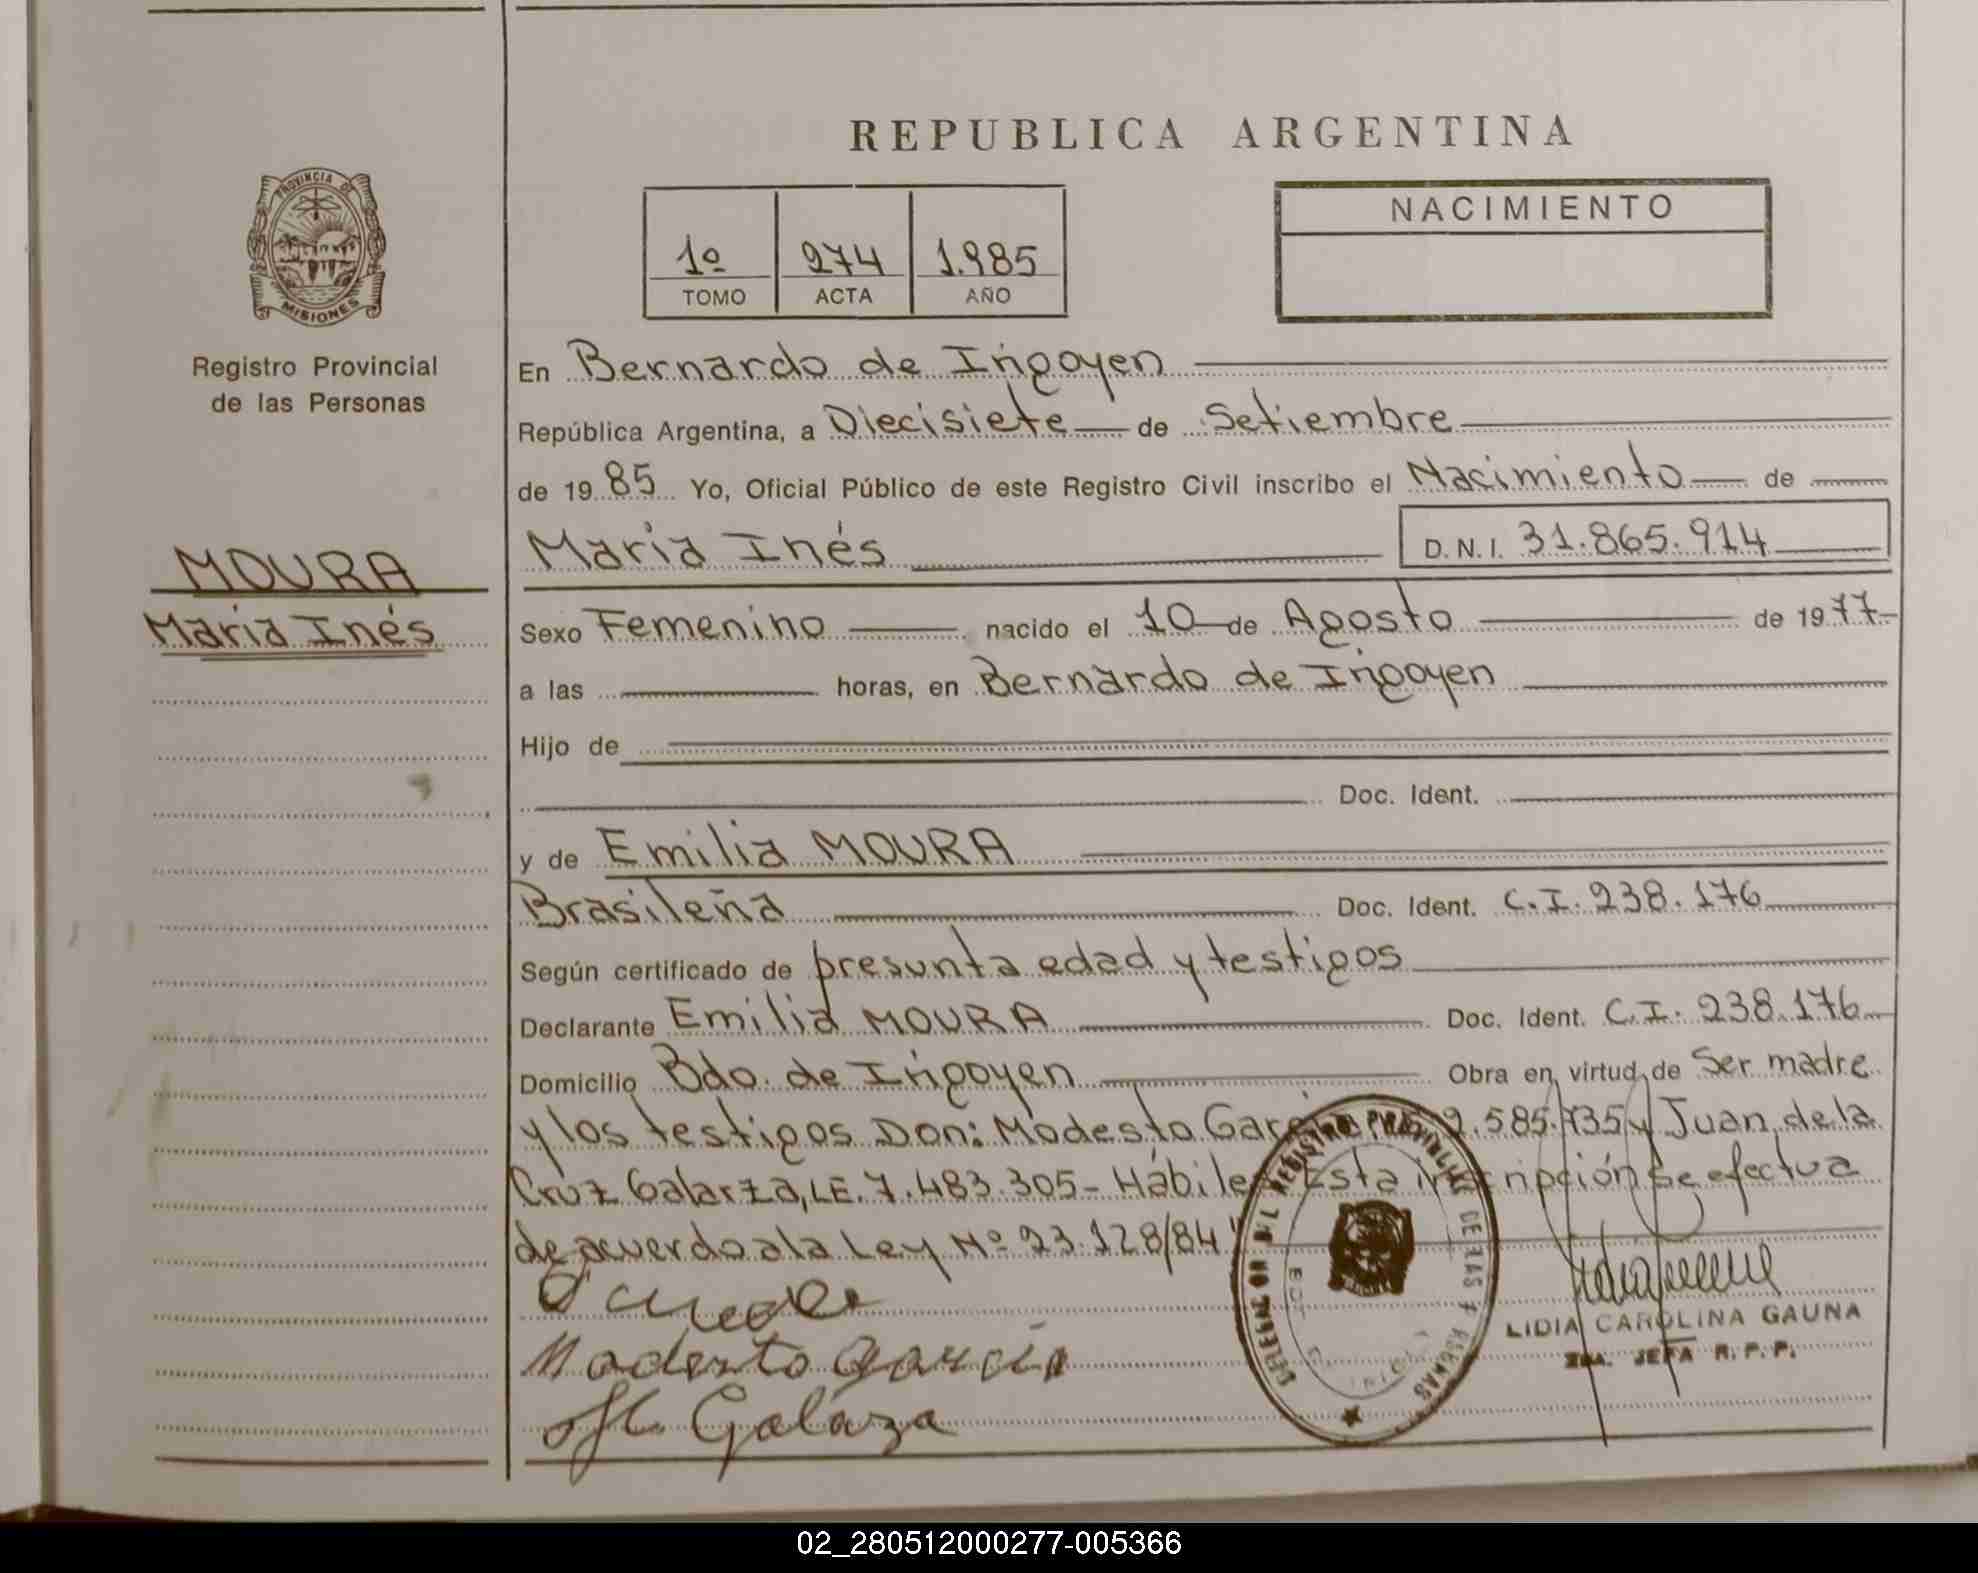 REPUBLICA ARGENTINA
PROVINCIA DE
MISIONES
Registro Provincial
de las Personas
1º 274 1.985
TOMO ACTA AÑO
NACIMIENTO
MOURA
Maria Inés
En Bernardo de Irigoyen
República Argentina, a Diecisiete de Setiembre
de 1985 Yo, Oficial Público de este Registro Civil inscribo el Nacimiento de
Maria Inés D.N.I. 31.865.914
Sexo Femenino nacido el 10 de Agosto de 1977
a las horas, en Bernardo de Irigoyen
Hijo de
Doc. Ident.
y de Emilia MOURA
Brasileña Doc. Ident. C.I. 238.176
Según certificado de presunta edad y testigos
Declarante Emilia MOURA Doc. Ident. C.I. 238.176
Domicilio Bdo. de Irigoyen Obra en virtud de Ser madre
y los testigos Don: Modesto 585.735 y Juan de la
Cruz Galarza, LE. 7.483.305- Hábiles Esta inscripción se efectua
de acuerdo a la Ley Nº 23.128/84
Modesto Garcia
Galarza
LIDIA CAROLINA GAUNA
2da. JEFA R.P.P.
02_280512000277-005366